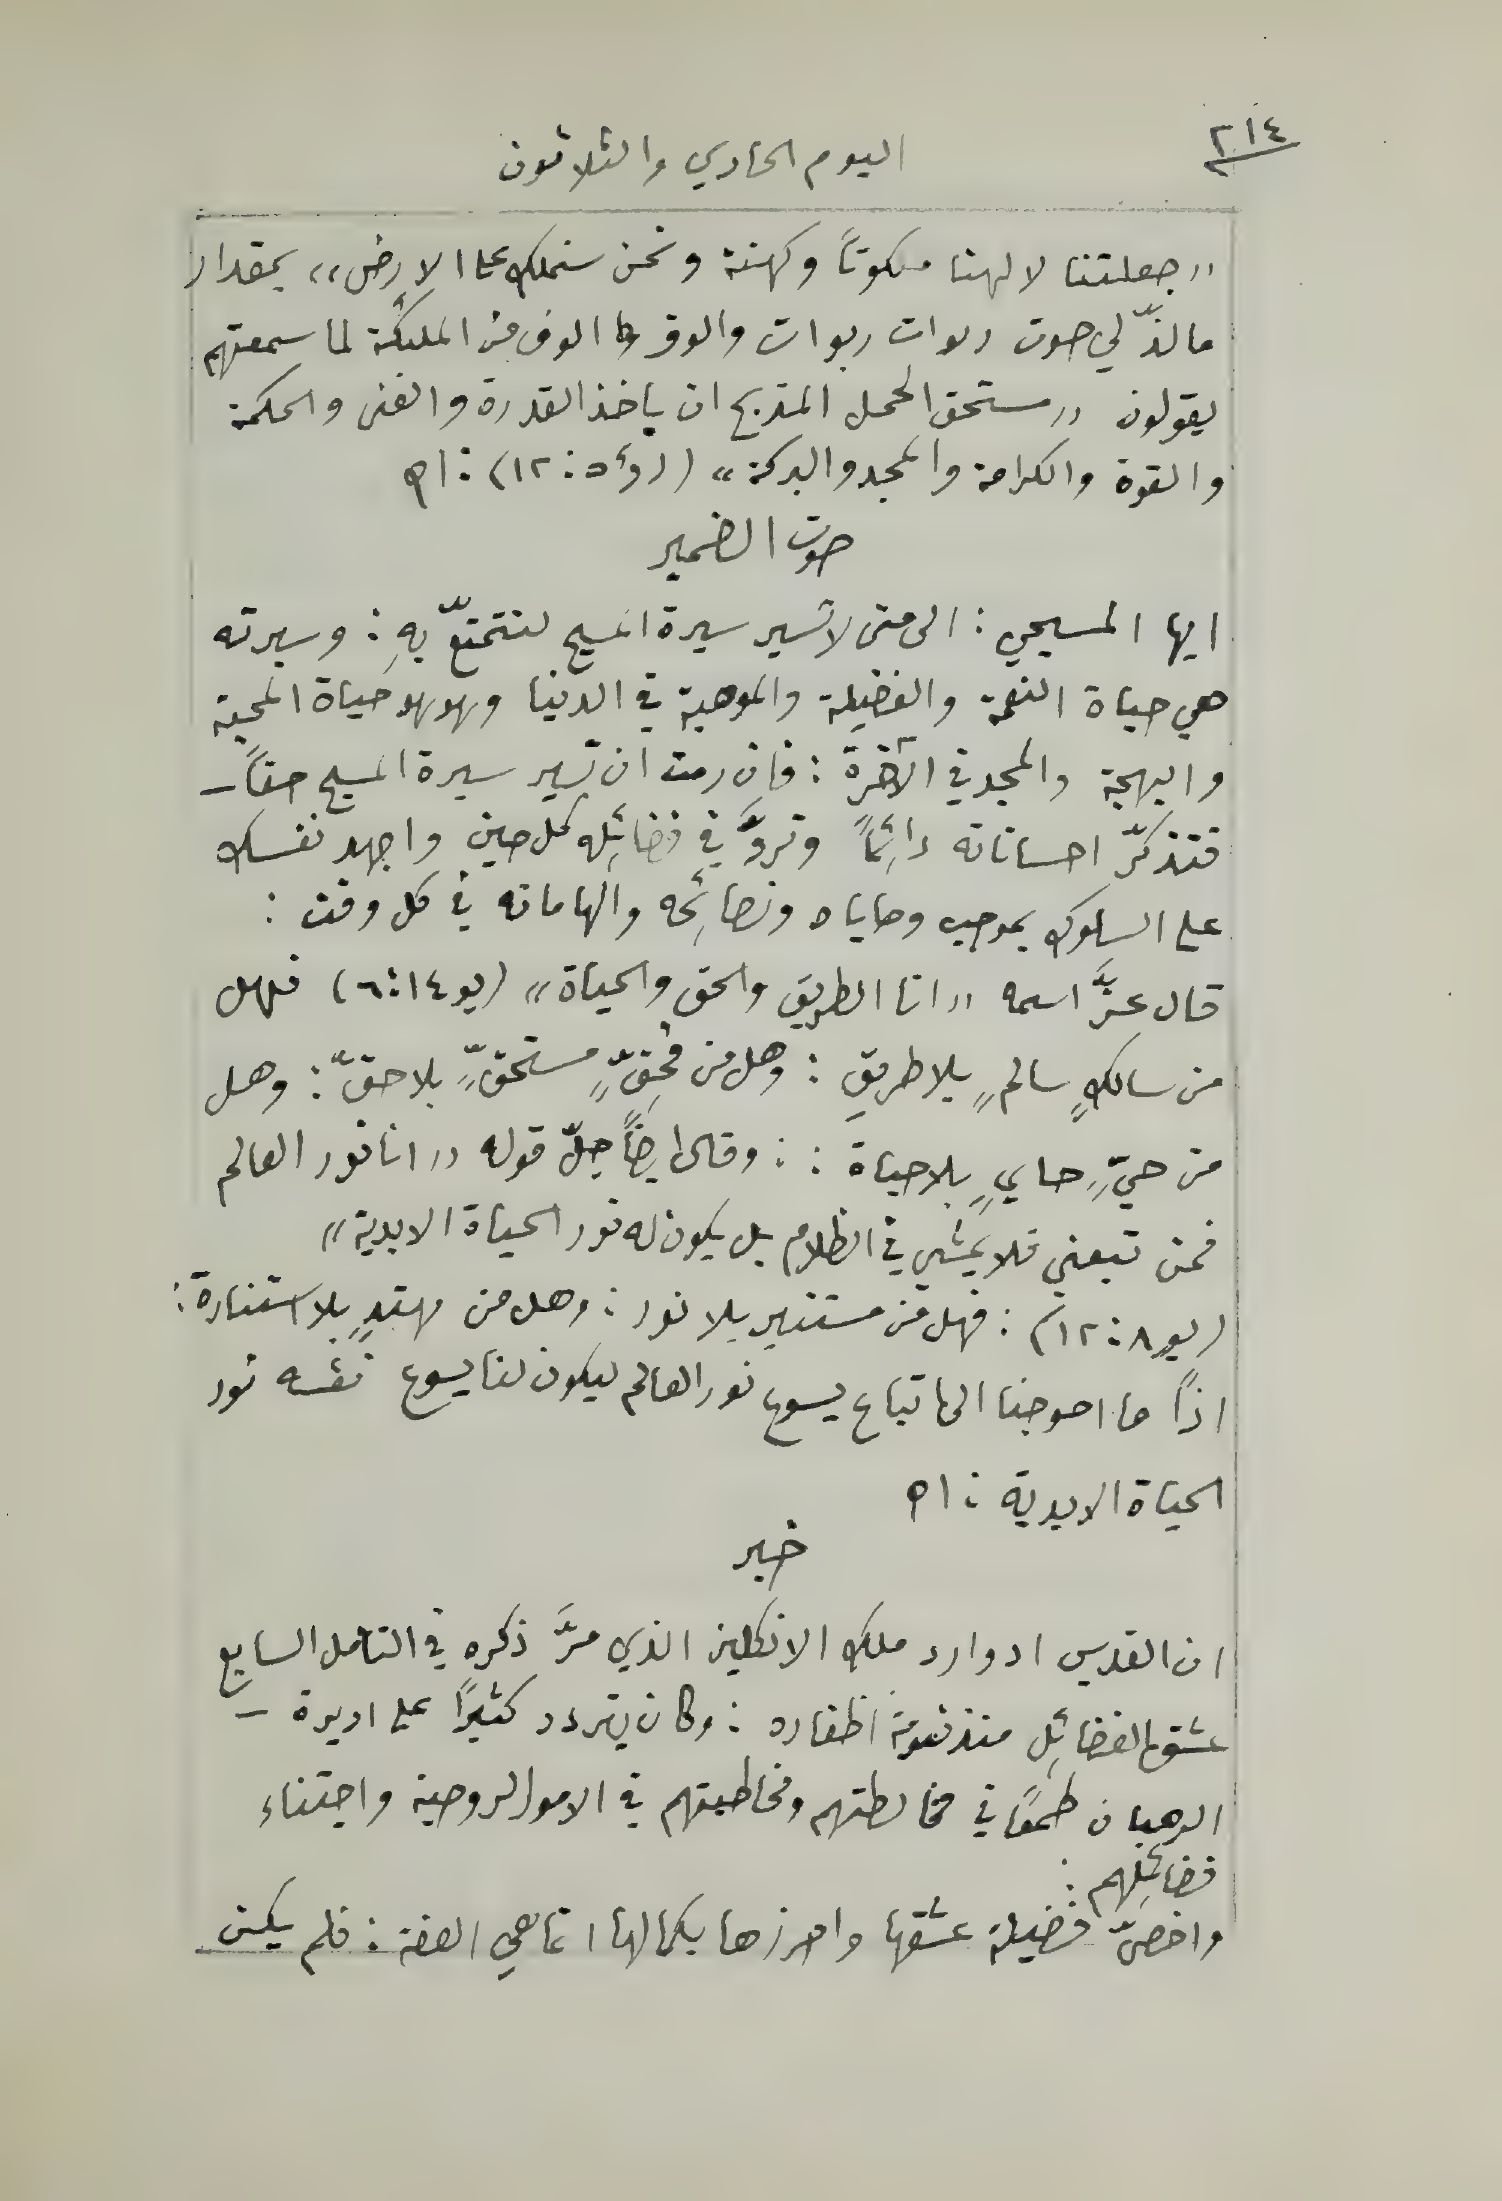 ٢١٤
اليوم الحادي والثلاثون
«جعلتنا لالهنا ملكوتاً وكهنة ونحن سنملك على الارض» بمقدار
ما لذّ لي صوت ربوات ربوات والوف الوف من المليكة لما سمعتهم
يقولون «مستحق الحمل المذبح ان ياخذ القدرة والغنى والحكمة
والقوة والكرامة والمجد والبركة» (رؤ ٥: ١٢) : اه
صوت الضمير
ايها المسيحي : الى متى لا تسير سيرة المسيح لتتمتّع بهِ : وسيرته
هي حياة النعمة والفضيلة والموهبة في الدينا وهو حياة المحبة
والبهجة والمجد في الآخرة : فان رمت ان تسير سيرة المسيح حقاً –
فتذكرّ احساناته دائماً وتروَّ في فضائِله كل حين واجهد نفسك
على السلوك بموجب وصاياه ونصائِحه والهاماته في كل وقت :
قال عزَّ اسمه «انا الطريق والحق والحياة» (يو ١٤: ٦) فهل
من سالكٍ سالمٍ بلا طريقٍ : وهل من محِقٍّ مستحقٍّ بلا حقّ : وهل
من حيٍّ حايٍ بلا حياة : : وقال ايضاً جلّ قوله «انا نور العالم
فمن تبعني فلا يمشي في الظلام بل يكون له نور الحياة الابدية»
(يو ٨: ١٢) : فهل من مستنير بلا نور : وهل من مهتدٍ بلا استنارة :
اذاً ما احوجنا الى اتباع يسوع نور العالم ليكون لنا يسوع نفسه نور
الحياة الابدية : اه
خبر
ان القديس ادوارد ملك الانكليز الذي مرَّ ذكره في التامل السابع
عشق الفضائِل منذ نعومة اظفاره : وكان يتردد كثيراً على اديرة –
الرهبان طمعًا في مخالطتهم ومخاطبتهم في الامور الروحية واجتناء
فضائِلهم :
واخصّ فضيلة عشقها واحرزها بكمالها انما هي العفة : فلم يكن